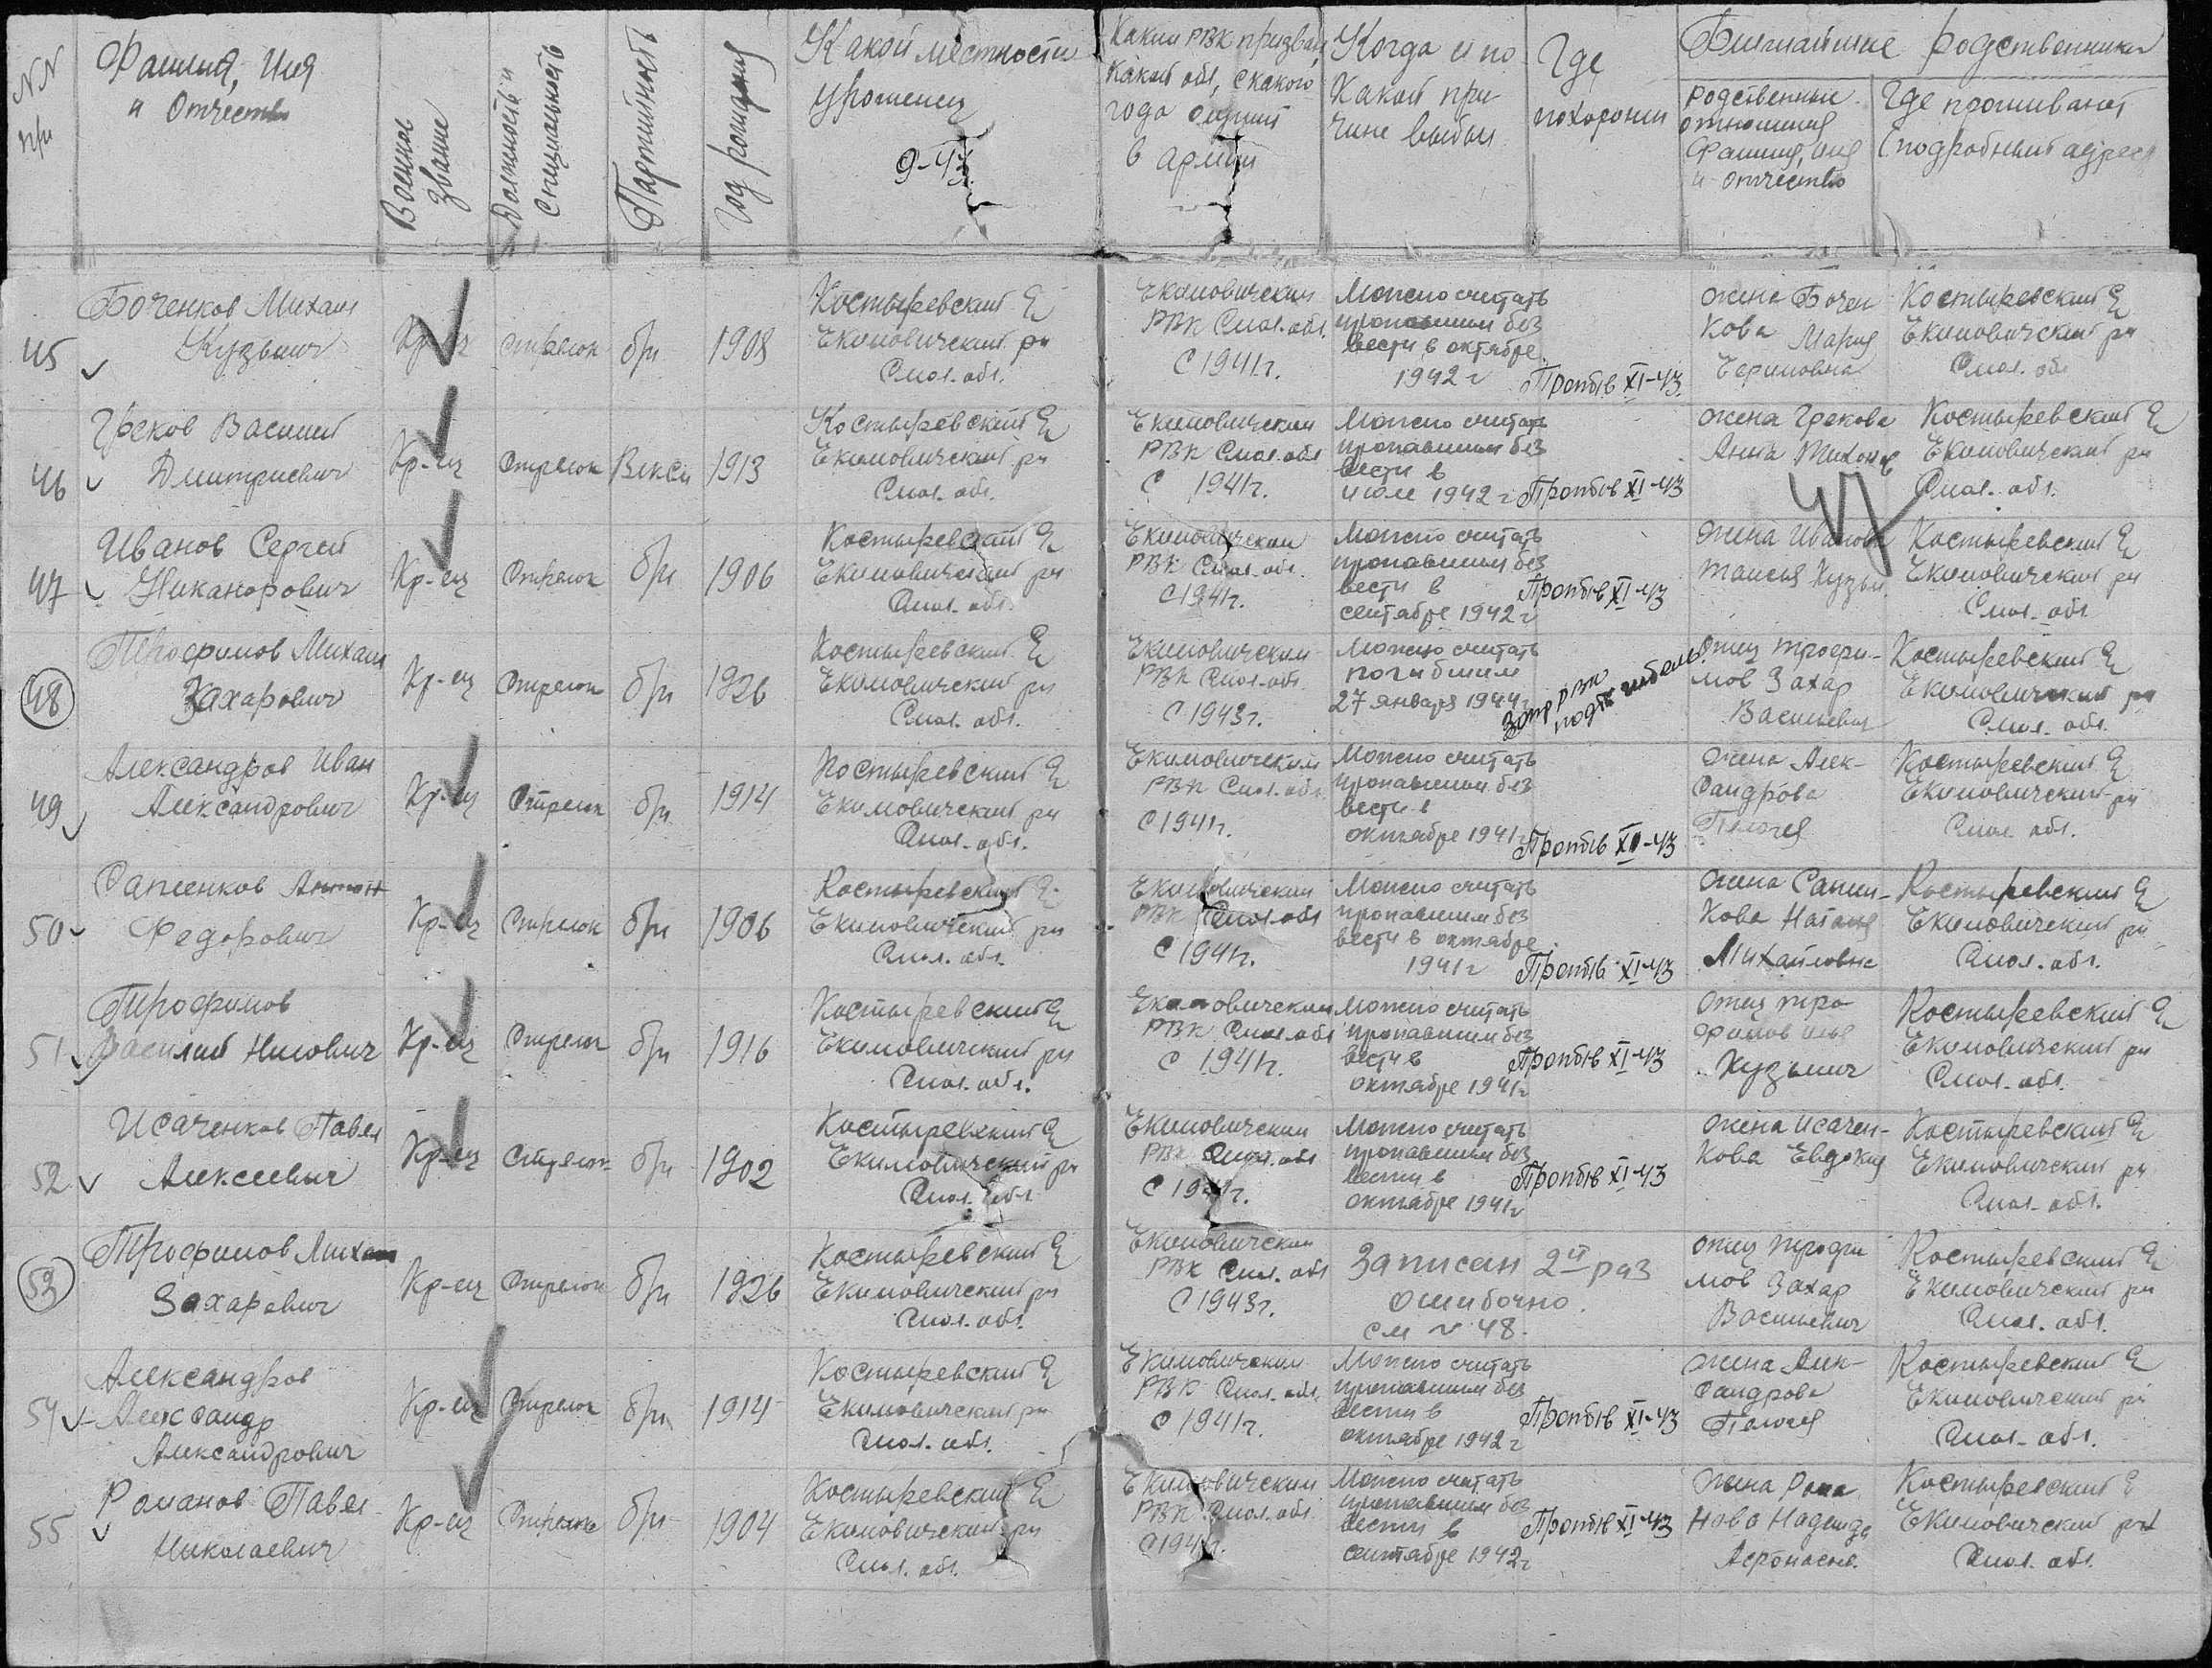 NN п/п
Фамилия, Имя и Отчество
Военное звание
Должность и специальность
Партийность
Год рождения
Какой местности уроженец
9-43
Каким РВК призван, какой обл, с какого года служит в армии
Когда и по какой причине выбыл
Где похоронен
Ближайшие родственники
родственные отношения Фамилия, имя и отчество
Где проживают (подробный адрес)
45 Боченков Михаил
Кузьмич
Кр-ец стрелок бп 1908
Костыревский
Екимовичский рн
Смол. обл.
Екимовичским
РВК Смол. обл.
с 1941г.
Можно считать
пропавшим без
вести в октябре
1942 г
Проп б/в XI-43
жена Бочен
кова Мария
Костыревский
Екимовичский рн
Смол. об
46 Греков Василий
Дмитриевич
Кр-ец стрелок 1913
Костыревский
Екимовичский рн
Смол. обл.
Екимовичским
РВК Смол. обл
с 1941г.
Можно считать
пропавшим без
вести в
июле 1942 г
Проп б/в XI-43
жена Грекова
Анна Тихонов
Костыревский
Екимовичский рн
Смол. обл.
47
47 Иванов Сергей
Никанорович
Кр-ец Стрелок бп 1906
Костыревский
Екимовичский рн
Смол. обл.
Екимовичским
РВК Смол. обл.
с 1941г.
Можно считать
пропавшим без
вести в
сентябре 1942 г
Проп б/в XI-43
жена Иванова
Таисья Кузьм.
Костыревский
Екимовичский рн
Смол. обл
48 Трофимов Михаил
Захарович
Кр-ец Стрелок бп 1926
Костыревский
Екимовичский рн
Смол. обл.
Екимовичским
РВК Смол. обл.
с 1943г.
Можно считать
погибшим
27 января 1944 г
Запр РВК
подтв гибель
отец Трофи-
мов Захар
Васильевич
Костыревский
Екимовичский рн
Смол. обл.
49 Александров Иван
Александрович
Кр-ец Стрелок бп 1914
Костыревский
Екимовичский рн
Смол. обл.
Екимовичским
РВК Смол. обл.
с 1941г.
Можно считать
пропавшим без
вести в
октябре 1941 г
Проп б/в XI-43
жена Алек-
сандрова
Пелагея
Костыревский
Екимовичский рн
Смол обл.
50 Сапженков Антон
Федорович
Кр-ец Стрелок бп 1906
Костыревский
Екимовичский рн
Смол. обл.
Екимовичским
РВК Смол. обл
с 1941г.
Можно считать
пропавшим без
вести в октябре
1941 г
Проп б/в XI-43
жена
кова Наталья
Михайловна
Костыревский
Екимовичский рн
Смол. обл.
51 Трофимов
Василий Нилович
Кр-ец Стрелок бп 1916
Костыревский
Екимовичский рн
Смол. обл.
Екимовичским
РВК Смол. обл
с 1941г.
Можно считать
пропавшим без
вести в
октябре 1941 г
Проп б/в XI-43
отец Тро
фимов
Кузьмич
Костыревский
Екимовичский рн
Смол. обл.
52 Исаченков Павел
Алексеевич
Кр-ец Стрелок бп 1902
Костыревский
Екимовичский рн
Смол. обл
Екимовичским
РВК Смол. обл
с 1941г.
Можно считать
пропавшим без
вести в
октябре 1941 г
Проп б/в XI-43
жена Исачен-
кова Евдокия
Костыревский
Екимовичский рн
Смол. обл.
53 Трофимов Михаил
Захарович
Кр-ец Стрелок бп 1926
Костыревский
Екимовичский рн
Смол. обл.
Екимовичским
РВК Смол. обл
с 1943г.
Записан 2й раз
ошибочно.
см N 48.
отец Трофи
мов Захар
Васильевич
Костыревский
Екимовичский рн
Смол. обл.
54 Александров
Александр
Александрович
Кр-ец Стрелок бп 1914
Костыревский
Екимовичский рн
Смол. обл.
Екимовичским
РВК Смол. обл.
с 1941г.
Можно считать
пропавшим без
вести в
октябре 1942 г
Проп б/в XI-43
жена Алек-
сандрова
Пелагея
Костыревский
Екимовичский рн
Смол. обл.
55 Романов Павел
Николаевич
Кр-ец Стрелок бп 1904
Костыревский
Екимовичский рн
Смол. обл.
Екимовичским
РВК Смол. обл.
с 1941г.
Можно считать
пропавшим без
вести в
сентябре 1942 г
Проп б/в XI-43
жена Рома
нова Надежда
Костыревский
Екимовичский рн
Смол. обл.